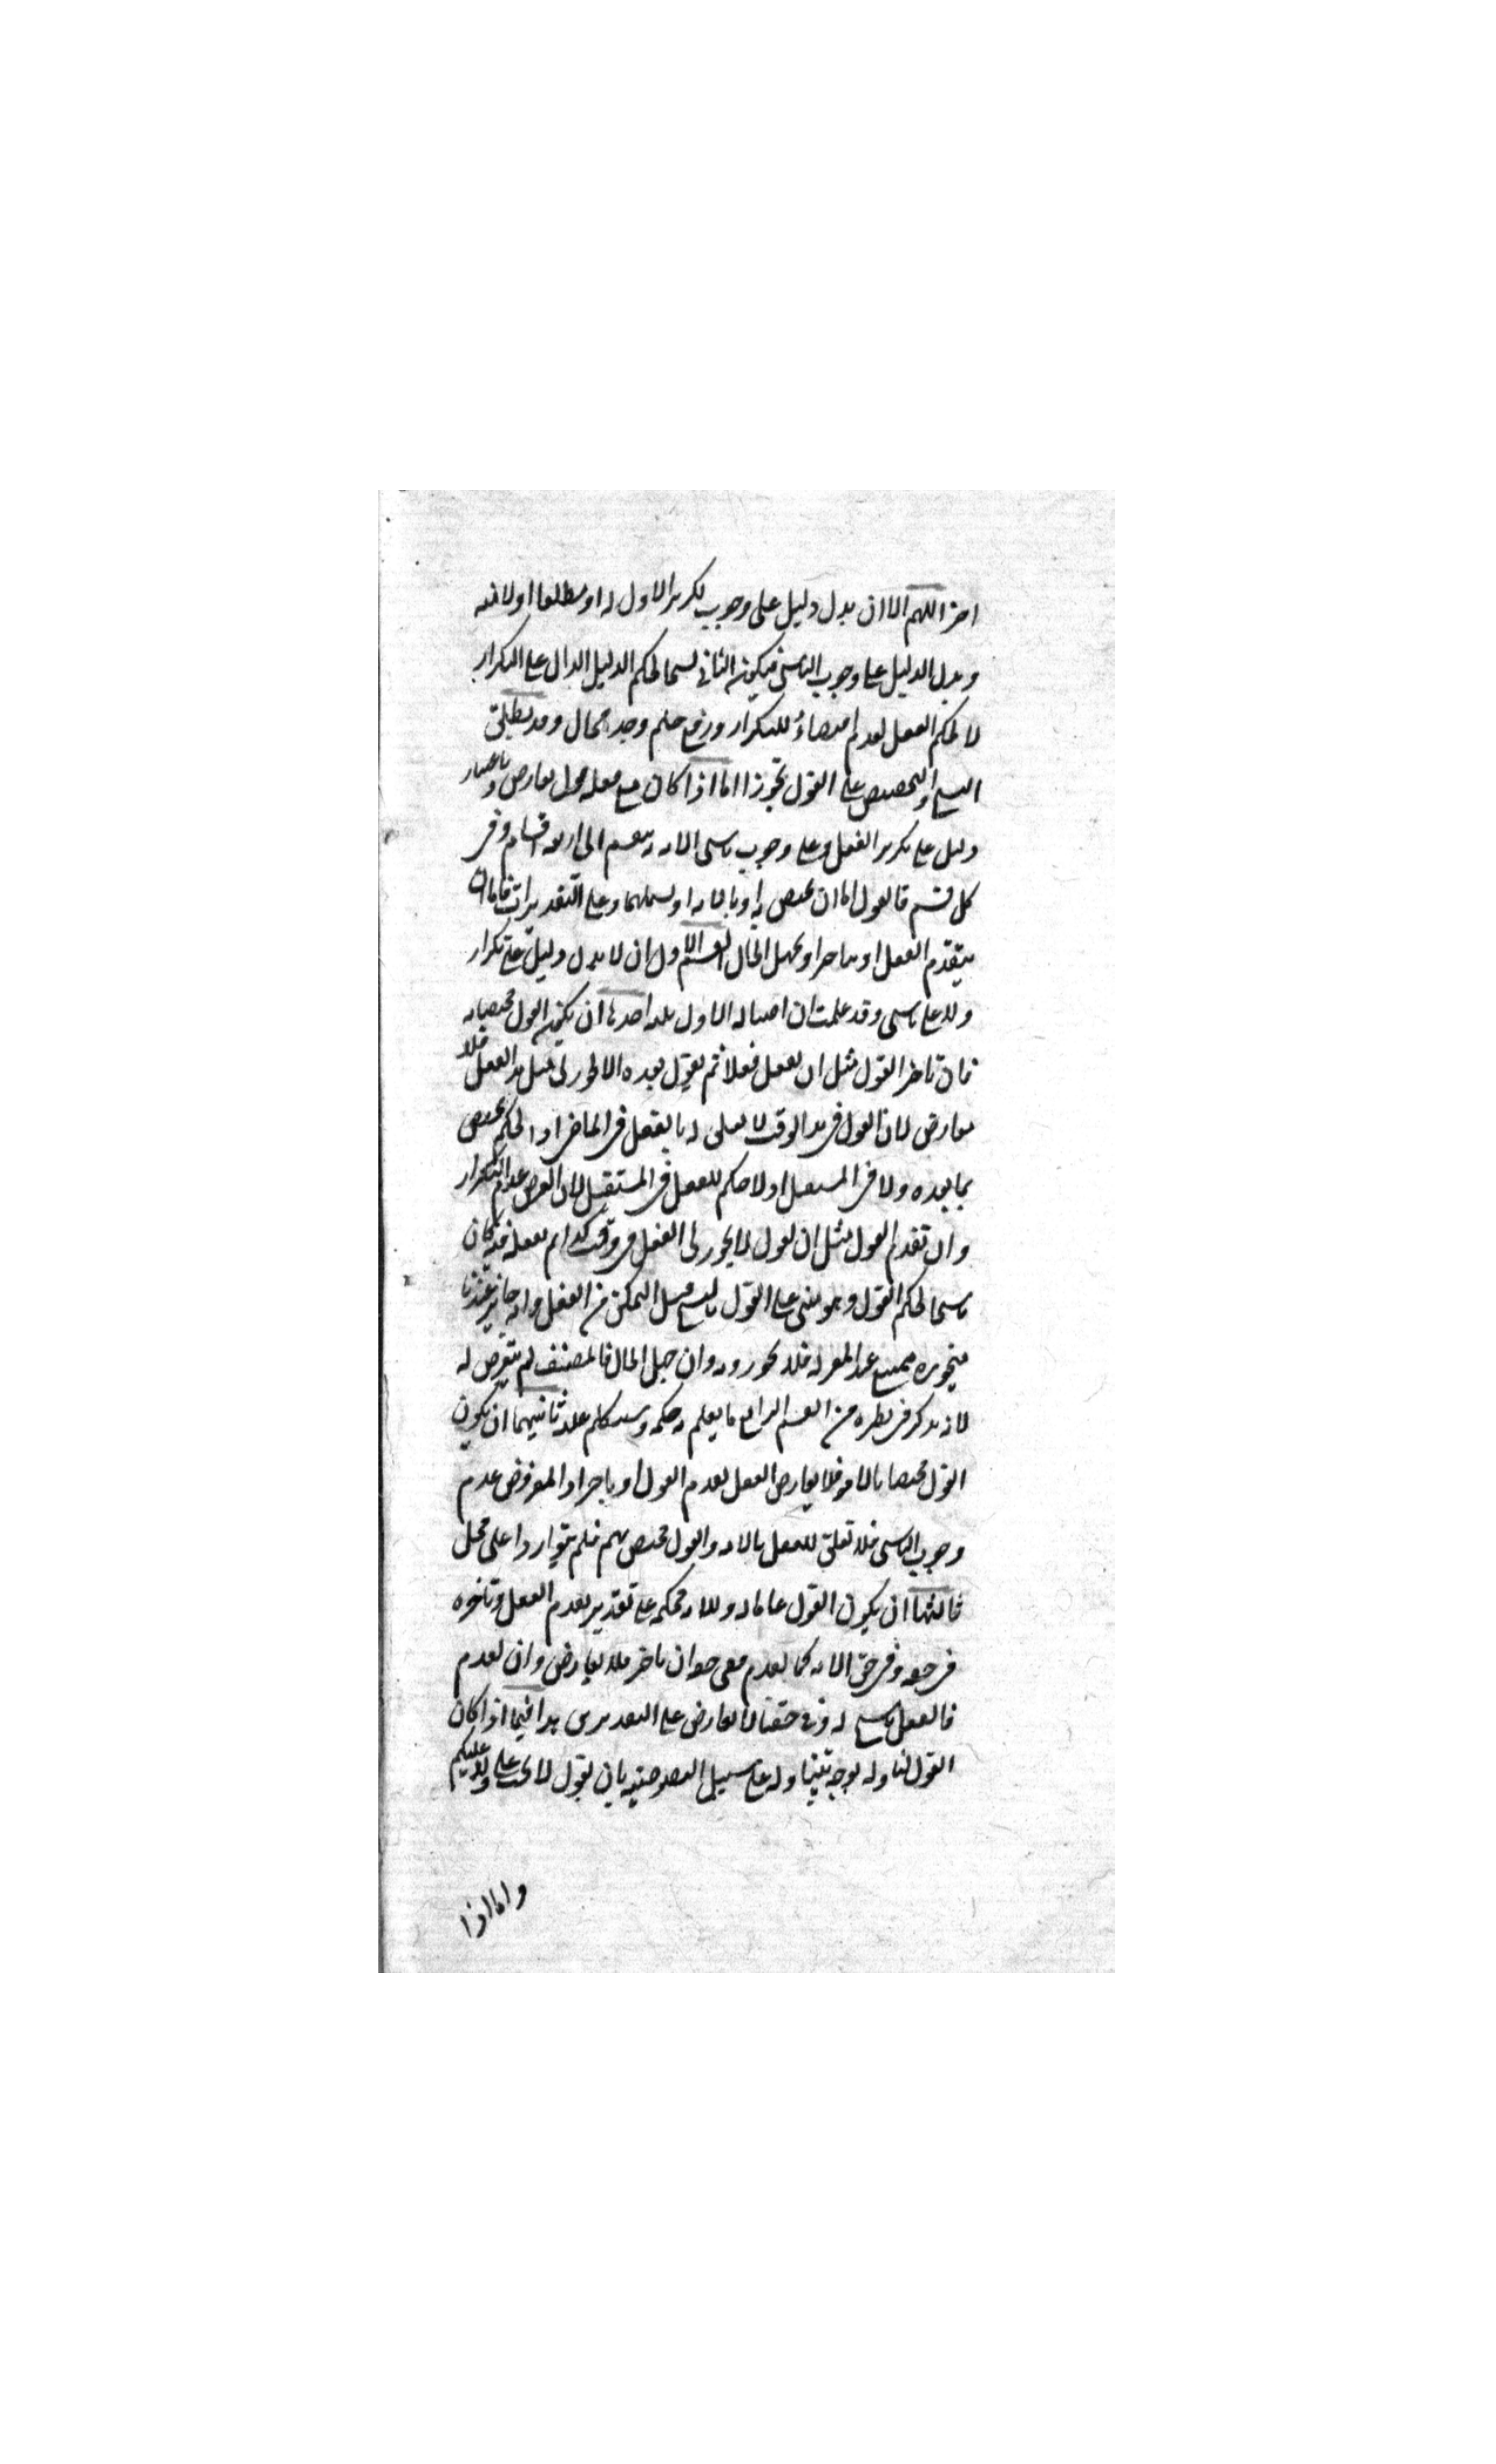 اخر اللهم الا ان يدل دليل على وجوب تكرير الاول له او مطلقا او لامته
ويدل الدليل على وجوب التاسي فيكون الثاني ناسخا لحكم الدليل الدال على التكرار
لا لحكم الفعل لعدم اقتضاءه للتكرار ورفع حكم وجد محال وقد يطلق
النسخ والتخصيص على القول تجوزا اما اذا كان مع فعله قول يعارضه وباعتبار
دليل على تكرير الفعل وعلى وجوب تاسي الامة به ينقسم الى اربعة اقسام وفي
كل قسم فالقول اما ان يختص به او بالامة او يشملهما وعلى التقديرات فاما ان
يتقدم الفعل او يتاخر او يجهل الحال القسم الاول ان لا يدل دليل على تكرار
ولا على تاسي وقد علمت ان اصنافه الاول ثلثة احدها ان يكون القول مختصا به
فان تاخر القول مثل ان يفعل فعلا ثم يقول بعده لا يجوز لي مثل هذا الفعل فلا
تعارض لان القول في هذا الوقت لا تعلق له بالفعل في الماضي اذ الحكم يختص
بما بعده ولا في المستقبل اذ لا حكم للفعل في المستقبل لان الفرض عدم التكرار
وان تقدم القول مثل ان يقول لا يجوز لي الفعل في وقت كذا ثم يفعله فيه كان
ناسخا لحكم القول وهو مبني على القول بالنسخ قبل التمكن من الفعل وانه جايز عندنا
فيجوزه ممتنع عند المعتزلة فلا يجوزونه وان جهل الحال فالمصنف لم يتعرض له
لانه يذكر في نظيره من القسم الرابع ما يعلم به حكمه وسنتكلم عليه ثانيهما ان يكون
القول مختصا بالامة فلا يعارض الفعل تقدم القول او تاخر اذ المفروض عدم
وجوب التاسي فلا تعلق للفعل بالامة والقول مختص بهم فلم يتواردا على محل
ثالثها ان يكون القول عاما له وللامة فحكمه على تقدير تقدم الفعل وتاخره
في حقه وفي حق الامة كما تقدم ففي حقه ان تاخر فلا تعارض وان تقدم
فالفعل ناسخ له وفي حقنا لا تعارض على التقديرين هذا فيما اذا كان
القول لنا وله بوجه يتناوله على سبيل النصوصية بان يقول لا يجب علي ولا عليكم
واما اذا